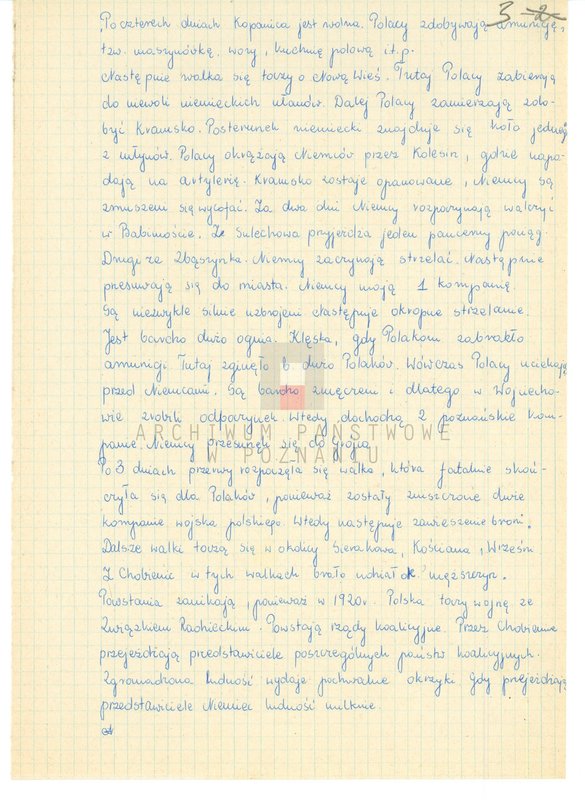 3 -2-
Po czterech dniach Kopanica jest wolna. Polacy zdobywają amunicję,
tzw. maszynówkę, wozy, kuchnię polową i.t.p.
Następnie walka się toczy o Nową Wieś. Tutaj Polacy zabierają
do niewoli niemieckich ułanów. Dalej Polacy zamierzają zdo-
być Kramsko. Posterunek niemiecki znajduje się koło jednego
z młynów. Polacy okrążają Niemców przez Kolesin, gdzie napa-
dają na artylerię. Kramsko zostaje opanowane, Niemcy są
zmuszeni się wycofać. Za dwa dni Niemcy rozpoczynają walczyć
w Babimoście. Ze Sulechowa przyjeżdża jeden pancerny pociąg.
Drugi ze Zbąszynka. Niemcy zaczynają strzelać. Następnie
przesuwają się do miasta. Niemcy mają 1 kompanię.
Są niezwykle silnie uzbrojeni. Następuje okropne strzelanie.
Jest bardzo dużo ognia. Klęska, gdy Polakom zabrakło
amunicji. Tutaj zginęło b. dużo Polaków. Wówczas Polacy uciekają
przed Niemcami. Są bardzo zmęczeni i dlatego w Wojniecho-
wie zrobili odpoczynek. Wtedy dochodzą 2 poznańskie kom-
panie. Niemcy przesunęli się do Grójca.
Po 3 dniach przerwy rozpoczęła się walka, która fatalnie skoń-
czyła się dla Polaków, ponieważ zostały zniszczone dwie
kompanie wojska polskiego. Wtedy następuje zawieszenie broni.
Dalsze walki toczą się w okolicy Sierakowa, Kościana, Wrześni
Z Chobienic w tych walkach brało udział ok. mężczyzn.
Powstania zanikają, ponieważ w 1920r. Polska toczy wojnę ze
Związkiem Radzieckim. Powstają rządy koalicyjne. Przez Chobienice
przejeżdżają przedstawiciele poszczególnych państw koalicyjnych.
Zgromadzona ludność wydaje pochwalne okrzyki. Gdy przejeżdżają
przedstawiciele Niemiec ludność milknie.
ARCHIWUM PAŃSTWOWE
W POZNANIU